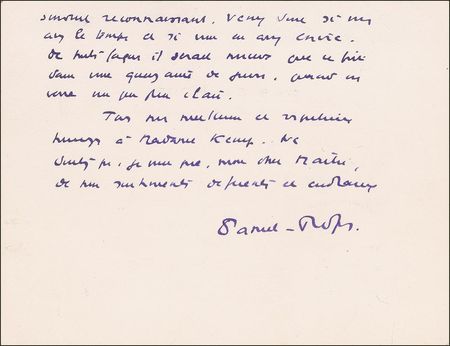 reconnaissant. Venez donc si vous
avez le temps et si vous en avez envie.
De toute façon il serait mieux que ce fût
dans une quinzaine de jours, quand on
verra un peu plus clair.
Tous mes meilleurs et
hommages à Madame Kemp. Ne
doutez pas, je vous prie, mon cher Maître,
de mes sentiments déférents et cordiaux
Daniel-Rops.